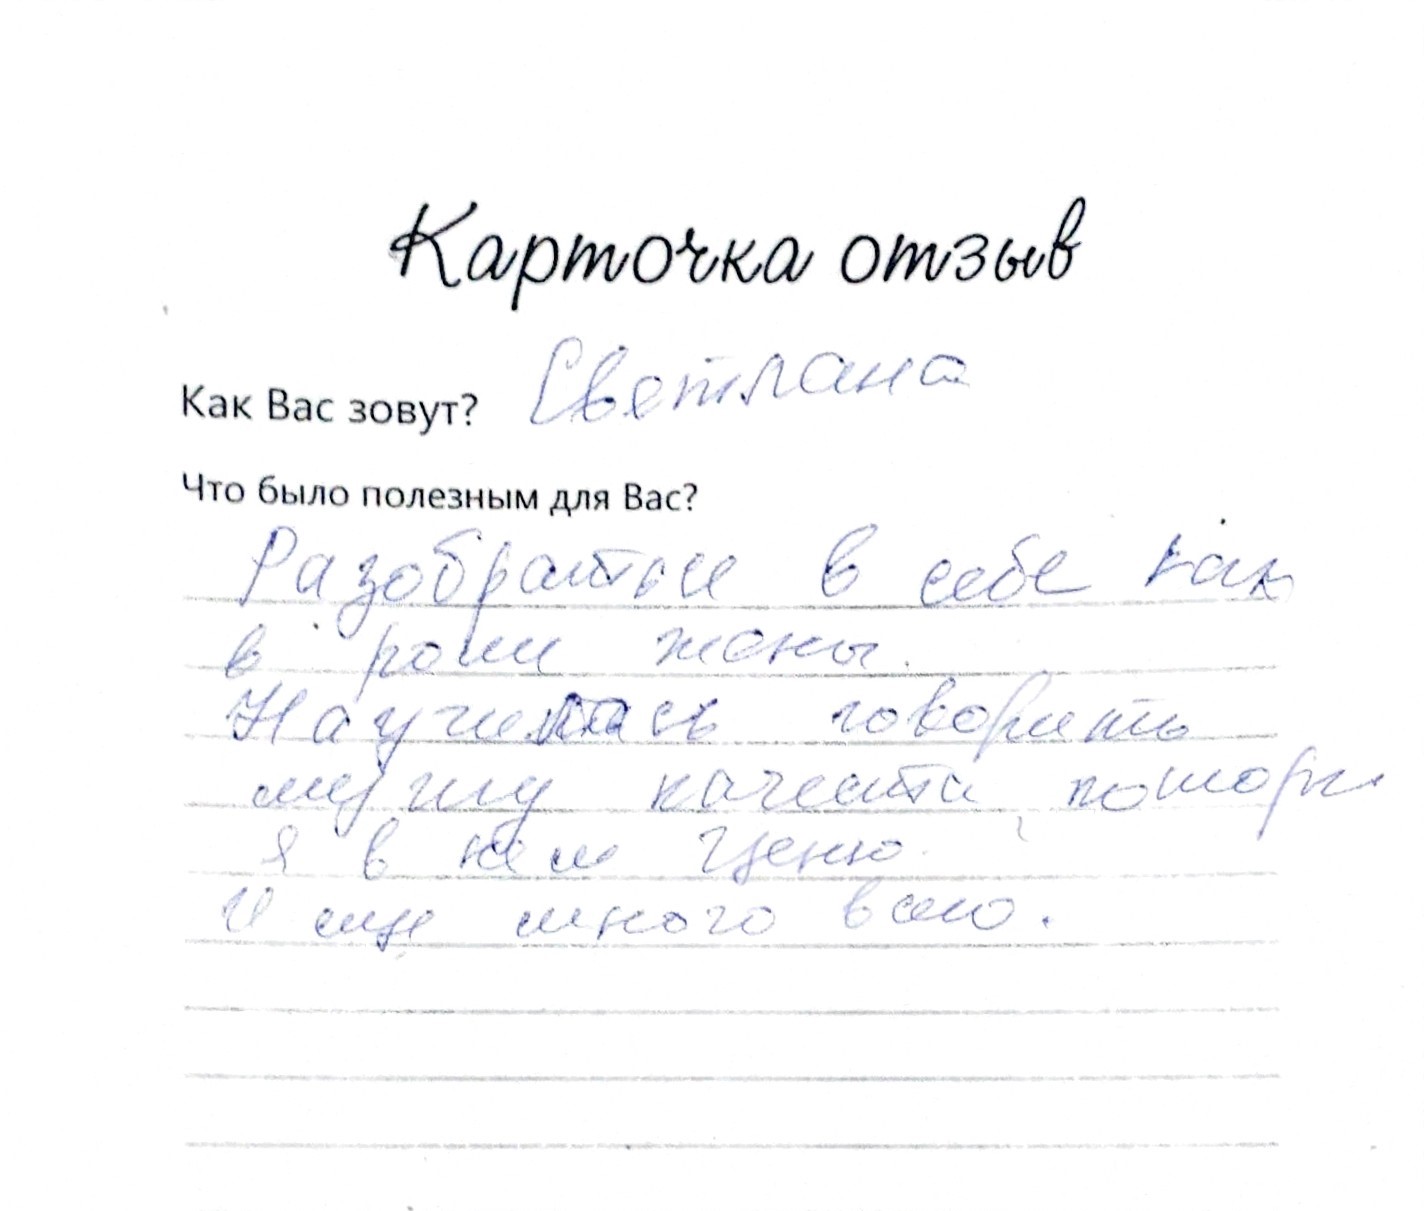 Карточка отзыв
Как Вас зовут? Светлана
Что было полезным для Вас?
Разобраться в себе как
в роли жены.
Научилась говорить
мужу качества которые
я в нем ценю.
И еще много всего.